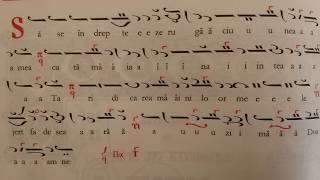 Să se în drep te e e ze ru gă ă ciu u u nea a a
a mea ca tă mâ â ia a î î na i in tea a a
a a Ta ri di ca rea mâi ni lor me e e e le
jert fă de sea a a ră a u u u zi i mă ă ă Doa
a a a am ne fix